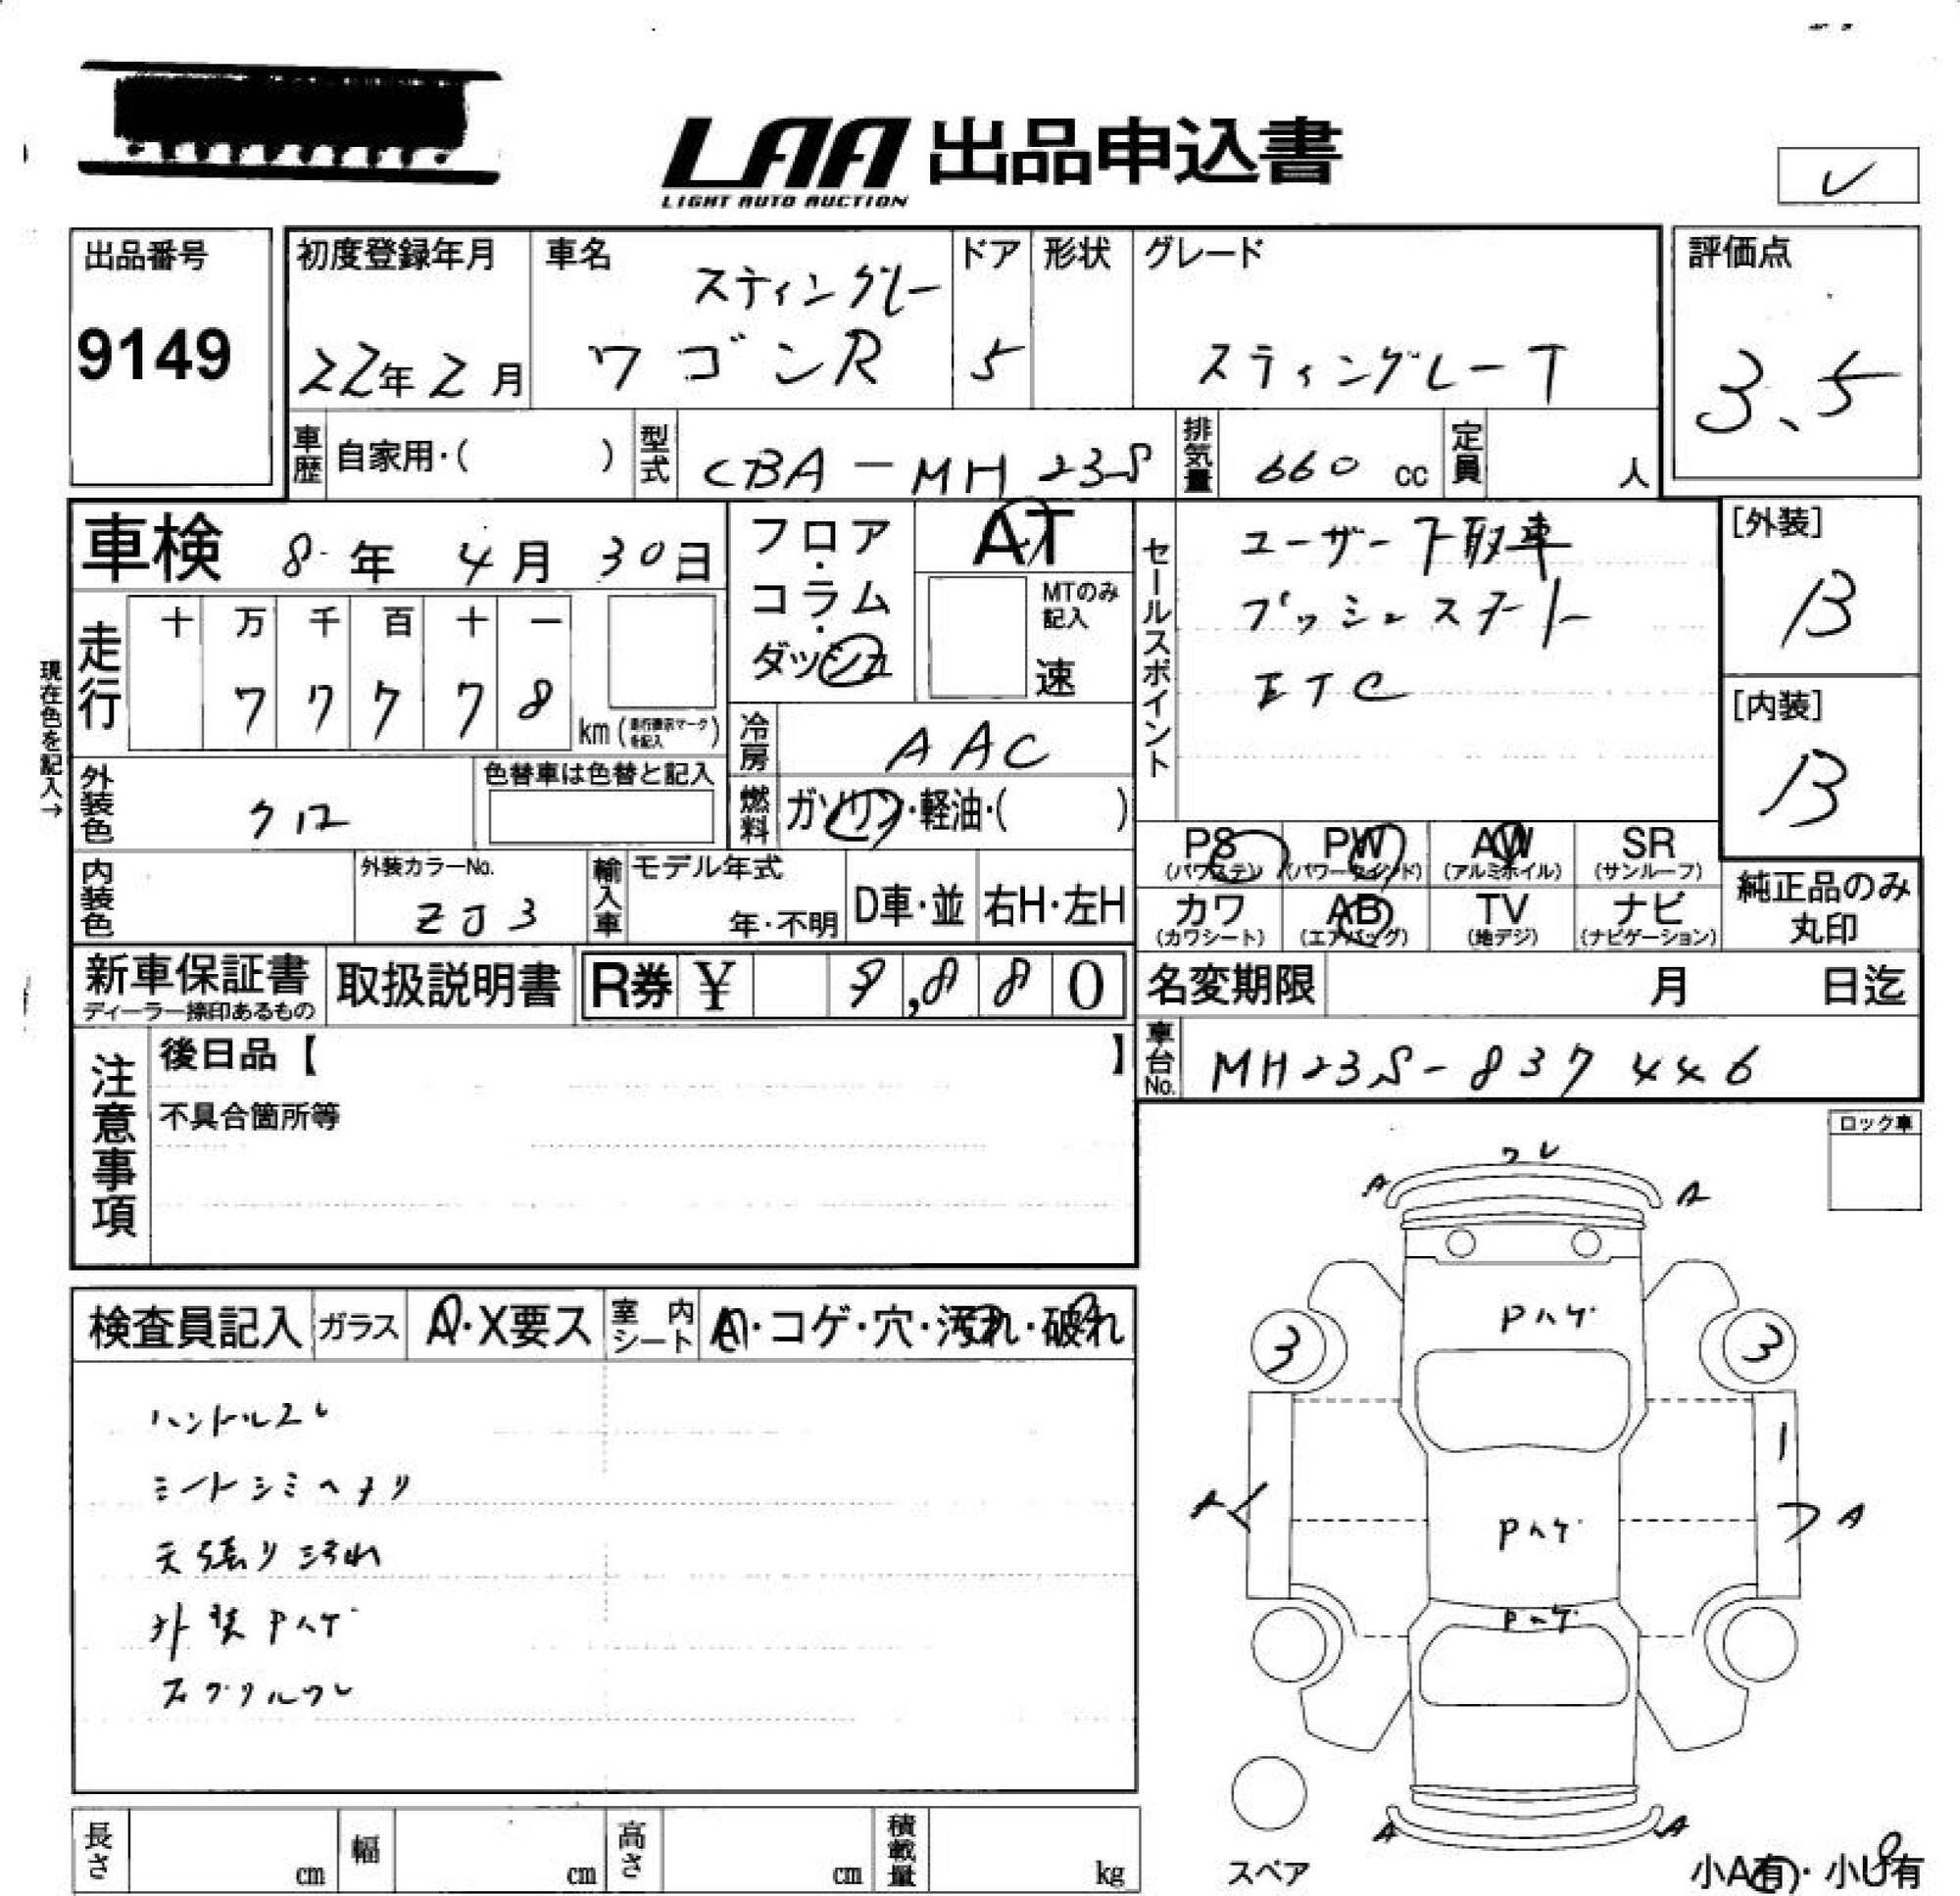 LAA 出品申込書
LIGHT AUTO AUCTION
レ
出品番号
9149
初度登録年月
22年2月
車名
スティングレー
ワゴンR
ドア
5
形状
グレード
スティングレーT
評価点
3.5
車歴 自家用・( )
型式 CBA-MH23S
排気量 660 cc
定員 人
車検 8年 4月 30日
フロア・コラム・ダッシュ
AT
MTのみ記入
速
セールスポイント
ユーザー下取車
プッシュスタート
ETC
[外装]
B
[内装]
B
現在色を記入→
走行
十 万 千 百 十 一
7 7 7 7 8
km (走行表示マークを記入)
冷房 AAC
外装色 クロ
色替車は色替と記入
燃料 ガソリン・軽油・( )
PS (パワステ)
PW (パワーウインド)
AW (アルミホイル)
SR (サンルーフ)
内装色
外装カラーNo.
ZJ3
輸入車
モデル年式
年・不明
D車・並
右H・左H
カワ (カワシート)
AB (エアバッグ)
TV (地デジ)
ナビ (ナビゲーション)
純正品のみ丸印
新車保証書
ディーラー捺印あるもの
取扱説明書
R券 ¥ 9,880
名変期限 月 日迄
車台No. MH23S-837446
注意事項
後日品【 】
不具合箇所等
ロック車
検査員記入
ガラス A・X要ス
室内シート A・コゲ・穴・汚れ・破れ
ハンドルスレ
シートシミヘタリ
天張り汚れ
外装Pハゲ
Fグリルワレ
ワレ
A A
Pハゲ
3 3
A
Pハゲ
A
Pハゲ
A A
スペア
小A有・小U有
長さ cm
幅 cm
高さ cm
積載量 kg